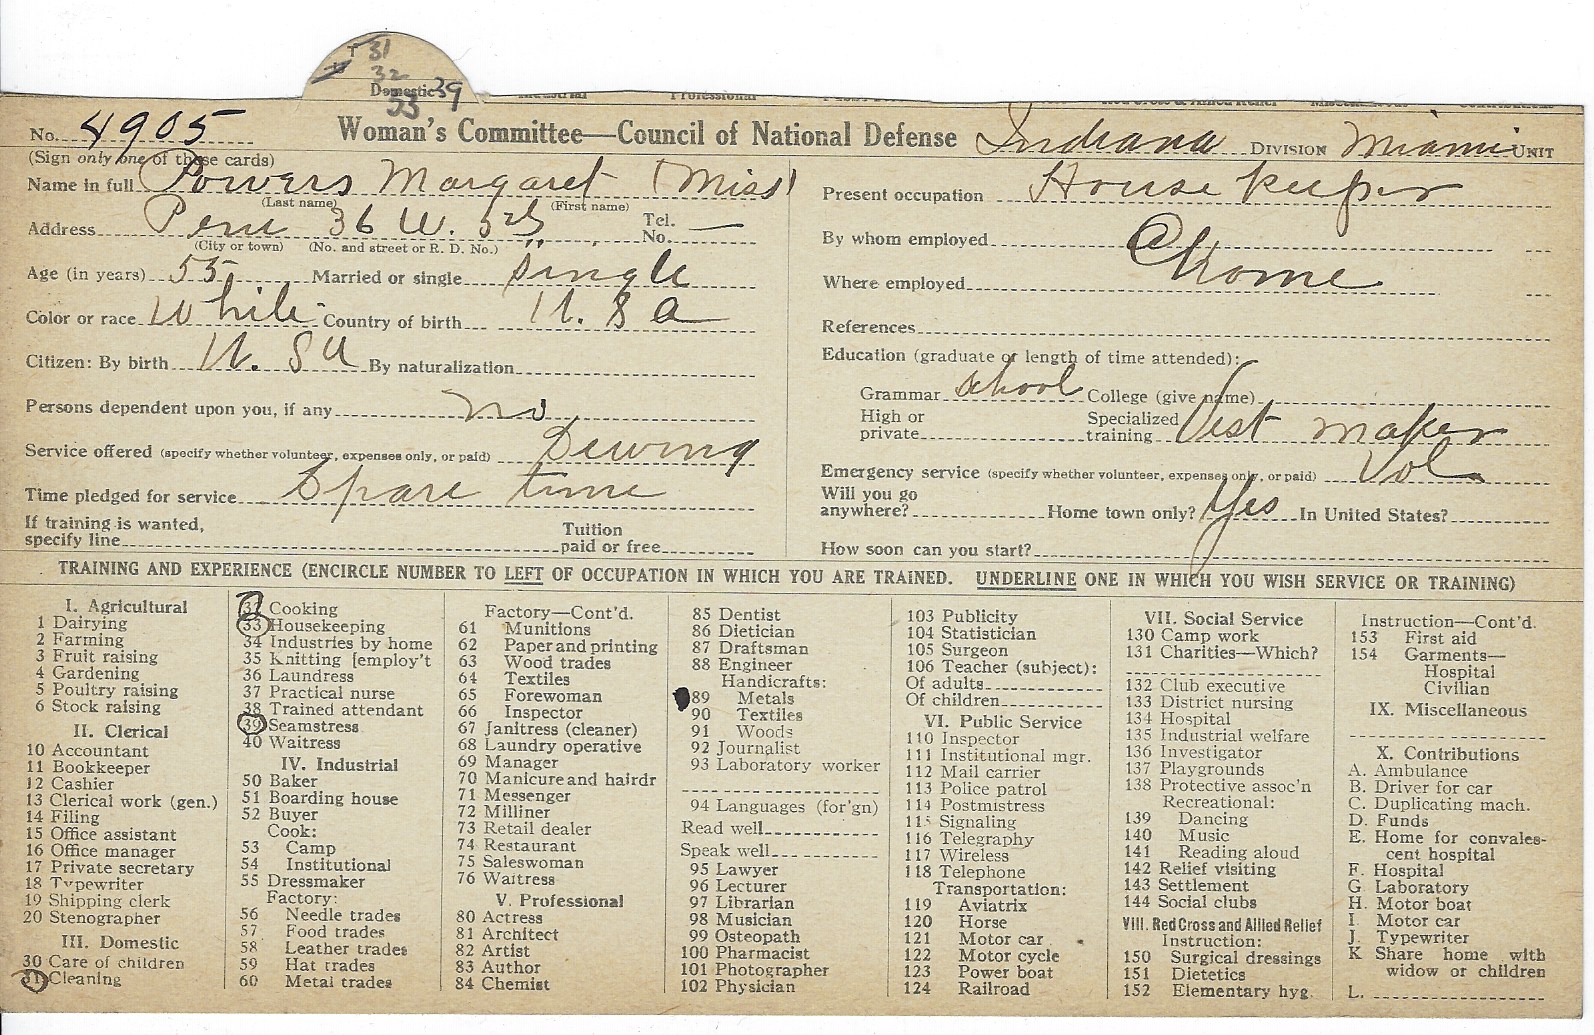 T 31
32
Domestic 39
33
No. 4905 Woman's Committee—Council of National Defense Indiana DIVISION Miami UNIT
(Sign only one of these cards)
Name in full Powers Margaret (Miss)
(Last name) (First name)
Address Peru 36 W. 5th Tel. No. —
(City or town) (No. and street or R. D. No.)
Age (in years) 55 Married or single single
Color or race White Country of birth U. S a
Citizen: By birth U. S a By naturalization
Persons dependent upon you, if any no
Service offered (specify whether volunteer, expenses only, or paid) Sewing
Time pledged for service Spare time
If training is wanted,
specify line Tuition paid or free
Present occupation House keeper
By whom employed @
Where employed home
References
Education (graduate or length of time attended):
Grammar school College (give name)
High or private Specialized training Vest maker
Emergency service (specify whether volunteer, expenses only, or paid) Vol
Will you go
anywhere? Home town only? Yes In United States?
How soon can you start?
TRAINING AND EXPERIENCE (ENCIRCLE NUMBER TO LEFT OF OCCUPATION IN WHICH YOU ARE TRAINED. UNDERLINE ONE IN WHICH YOU WISH SERVICE OR TRAINING)
I. Agricultural
1 Dairying
2 Farming
3 Fruit raising
4 Gardening
5 Poultry raising
6 Stock raising
II. Clerical
10 Accountant
11 Bookkeeper
12 Cashier
13 Clerical work (gen.)
14 Filing
15 Office assistant
16 Office manager
17 Private secretary
18 Typewriter
19 Shipping clerk
20 Stenographer
III. Domestic
30 Care of children
31 Cleaning
32 Cooking
33 Housekeeping
34 Industries by home
35 Knitting [employ't
36 Laundress
37 Practical nurse
38 Trained attendant
39 Seamstress
40 Waitress
IV. Industrial
50 Baker
51 Boarding house
52 Buyer
Cook:
53 Camp
54 Institutional
55 Dressmaker
Factory:
56 Needle trades
57 Food trades
58 Leather trades
59 Hat trades
60 Metal trades
Factory—Cont'd.
61 Munitions
62 Paper and printing
63 Wood trades
64 Textiles
65 Forewoman
66 Inspector
67 Janitress (cleaner)
68 Laundry operative
69 Manager
70 Manicure and hairdr
71 Messenger
72 Milliner
73 Retail dealer
74 Restaurant
75 Saleswoman
76 Waitress
V. Professional
80 Actress
81 Architect
82 Artist
83 Author
84 Chemist
85 Dentist
86 Dietician
87 Draftsman
88 Engineer
Handicrafts:
89 Metals
90 Textiles
91 Woods
92 Journalist
93 Laboratory worker
94 Languages (for'gn)
Read well
Speak well
95 Lawyer
96 Lecturer
97 Librarian
98 Musician
99 Osteopath
100 Pharmacist
101 Photographer
102 Physician
103 Publicity
104 Statistician
105 Surgeon
106 Teacher (subject):
Of adults
Of children
VI. Public Service
110 Inspector
111 Institutional mgr.
112 Mail carrier
113 Police patrol
114 Postmistress
115 Signaling
116 Telegraphy
117 Wireless
118 Telephone
Transportation:
119 Aviatrix
120 Horse
121 Motor car
122 Motor cycle
123 Power boat
124 Railroad
VII. Social Service
130 Camp work
131 Charities—Which?
132 Club executive
133 District nursing
134 Hospital
135 Industrial welfare
136 Investigator
137 Playgrounds
138 Protective assoc'n
Recreational:
139 Dancing
140 Music
141 Reading aloud
142 Relief visiting
143 Settlement
144 Social clubs
VIII. Red Cross and Allied Relief
Instruction:
150 Surgical dressings
151 Dietetics
152 Elementary hyg.
Instruction—Cont'd.
153 First aid
154 Garments—
Hospital
Civilian
IX. Miscellaneous
X. Contributions
A. Ambulance
B. Driver for car
C. Duplicating mach.
D. Funds
E. Home for convales-
cent hospital
F. Hospital
G Laboratory
H. Motor boat
I. Motor car
J. Typewriter
K Share home with
widow or children
L.